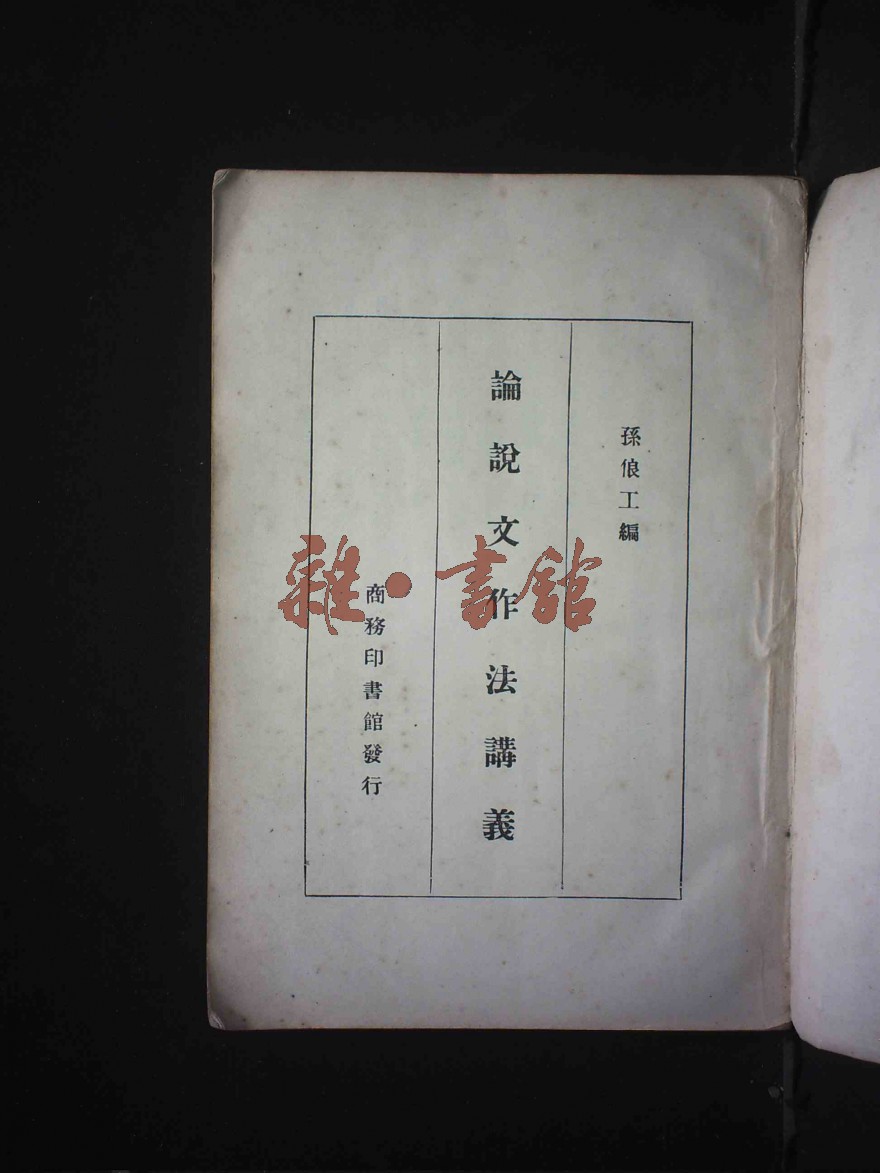 孫俍工編
論說文作法講義
商務印書館發行
雜·書館